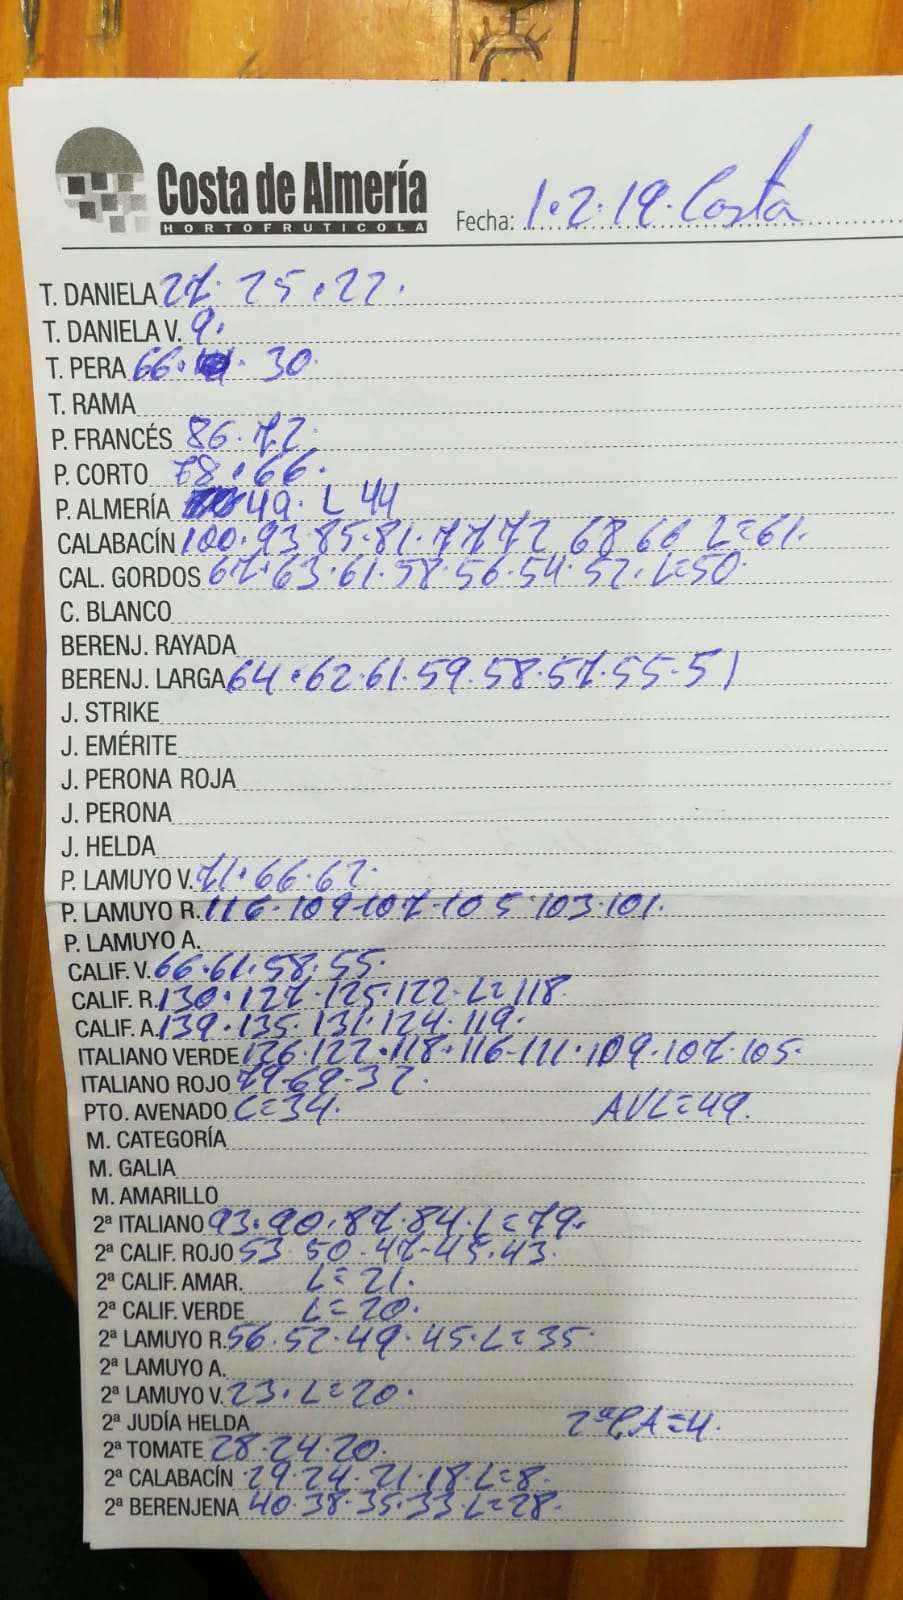 Costa de Almería
HORTOFRUTICOLA
Fecha: 1.2.19. Costa
T. DANIELA 27. 25.22.
T. DANIELA V. 9.
T. PERA 66. 30.
T. RAMA
P. FRANCÉS 86.72.
P. CORTO 78.66.
P. ALMERÍA 49. L 44
CALABACÍN 100.93.85.81.77.72 68 66 L=61.
CAL. GORDOS 67.63.61.58.56.54.52. L=50.
C. BLANCO
BERENJ. RAYADA
BERENJ. LARGA 64.62.61.59.58.57.55.51
J. STRIKE
J. EMÉRITE
J. PERONA ROJA
J. PERONA
J. HELDA
P. LAMUYO V. 71.66.62.
P. LAMUYO R. 116.109.107.105.103.101.
P. LAMUYO A.
CALIF. V. 66.61.58.55.
CALIF. R. 130.127.125.122.L=118.
CALIF. A. 139.135.131.124.119.
ITALIANO VERDE 126.122.118.116.111.109.107.105.
ITALIANO ROJO 79.69.32.
PTO. AVENADO L=34. AVL=49.
M. CATEGORÍA
M. GALIA
M. AMARILLO
2ª ITALIANO 93.90.87.84.L=79.
2ª CALIF. ROJO 53.50.47.45.43.
2ª CALIF. AMAR. L=21.
2ª CALIF. VERDE L=20.
2ª LAMUYO R. 56.52.49.45.L=35.
2ª LAMUYO A.
2ª LAMUYO V. 23. L=20.
2ª JUDÍA HELDA 2ªP,A=4.
2ª TOMATE 28.24.20.
2ª CALABACÍN 29.24.21.18.L=8.
2ª BERENJENA 40.38.35.33.L=28.